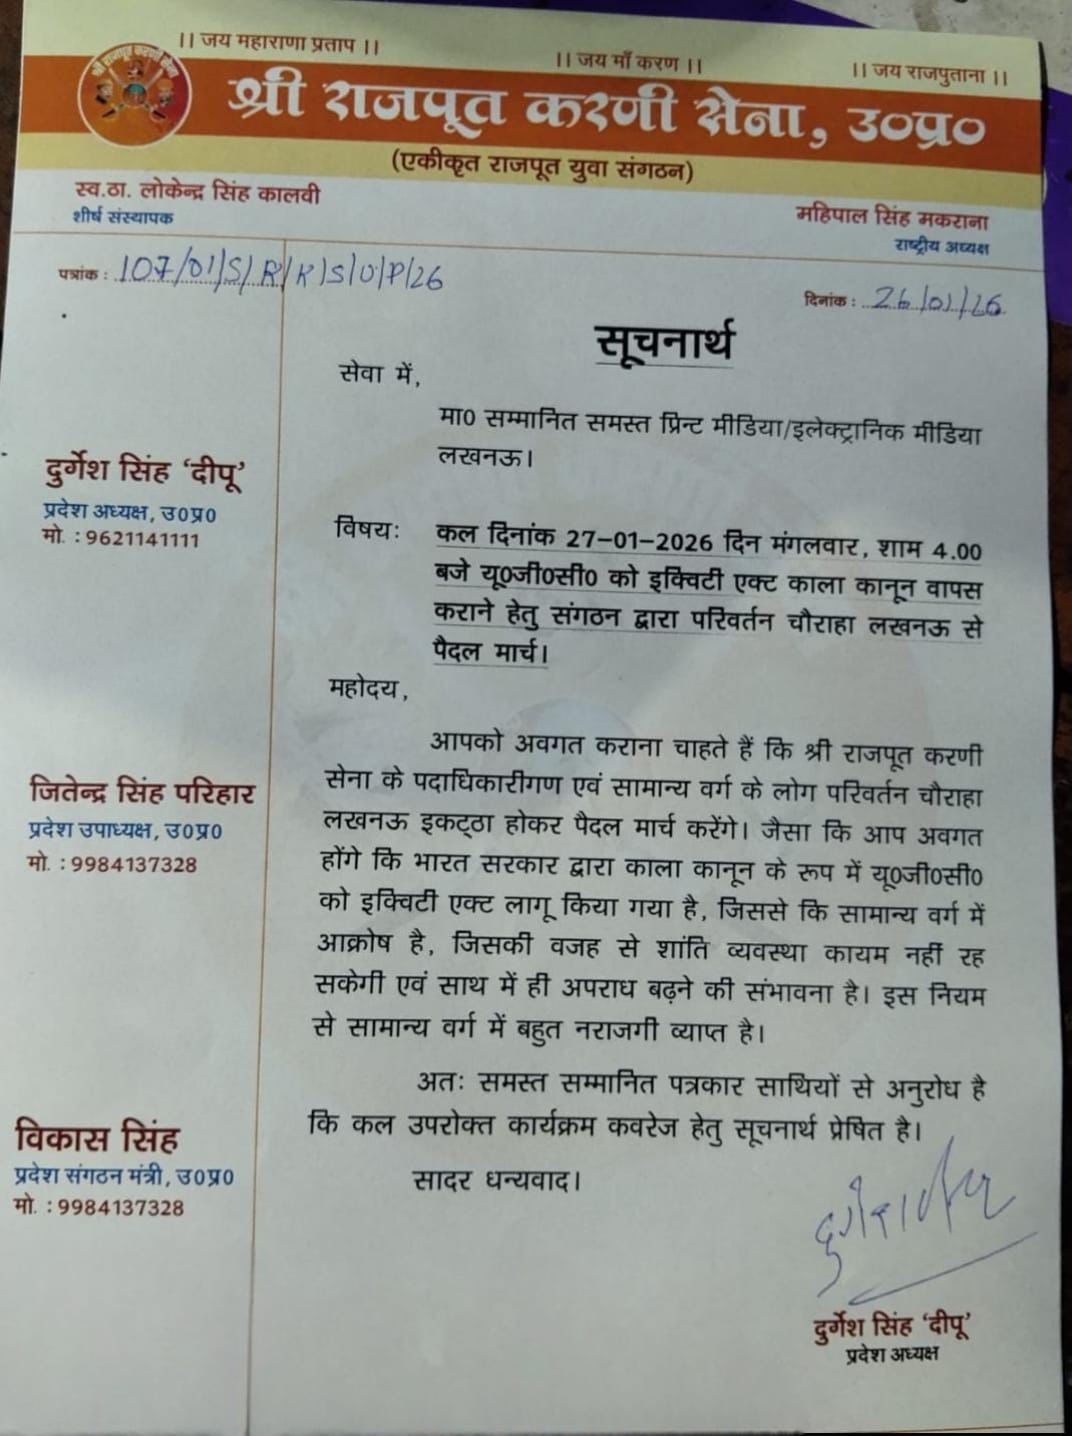 ।। जय महाराणा प्रताप ।।
।। जय माँ करण ।।
।। जय राजपुताना ।।
श्री राजपूत करणी सेना, उ०प्र०
(एकीकृत राजपूत युवा संगठन)
स्व.ठा. लोकेन्द्र सिंह कालवी
शीर्ष संस्थापक
महिपाल सिंह मकराना
राष्ट्रीय अध्यक्ष
पत्रांक : 107/01/S/R/K/S/U/P/26
दिनांक : 26/01/26
सूचनार्थ
सेवा में,
मा0 सम्मानित समस्त प्रिन्ट मीडिया/इलेक्ट्रानिक मीडिया
लखनऊ।
दुर्गेश सिंह ‘दीपू’
प्रदेश अध्यक्ष, उ०प्र०
मो. : 9621141111
विषयः कल दिनांक 27-01-2026 दिन मंगलवार, शाम 4.00
बजे यू0जी0सी0 को इक्विटी एक्ट काला कानून वापस
कराने हेतु संगठन द्वारा परिवर्तन चौराहा लखनऊ से
पैदल मार्च।
महोदय,
आपको अवगत कराना चाहते हैं कि श्री राजपूत करणी
सेना के पदाधिकारीगण एवं सामान्य वर्ग के लोग परिवर्तन चौराहा
लखनऊ इकट्ठा होकर पैदल मार्च करेंगे। जैसा कि आप अवगत
होंगे कि भारत सरकार द्वारा काला कानून के रूप में यू0जी0सी0
को इक्विटी एक्ट लागू किया गया है, जिससे कि सामान्य वर्ग में
आक्रोष है, जिसकी वजह से शांति व्यवस्था कायम नहीं रह
सकेगी एवं साथ में ही अपराध बढ़ने की संभावना है। इस नियम
से सामान्य वर्ग में बहुत नराजगी व्याप्त है।
जितेन्द्र सिंह परिहार
प्रदेश उपाध्यक्ष, उ०प्र०
मो. : 9984137328
अतः समस्त सम्मानित पत्रकार साथियों से अनुरोध है
कि कल उपरोक्त कार्यक्रम कवरेज हेतु सूचनार्थ प्रेषित है।
सादर धन्यवाद।
विकास सिंह
प्रदेश संगठन मंत्री, उ०प्र०
मो. : 9984137328
दुर्गेश सिंह ‘दीपू’
प्रदेश अध्यक्ष